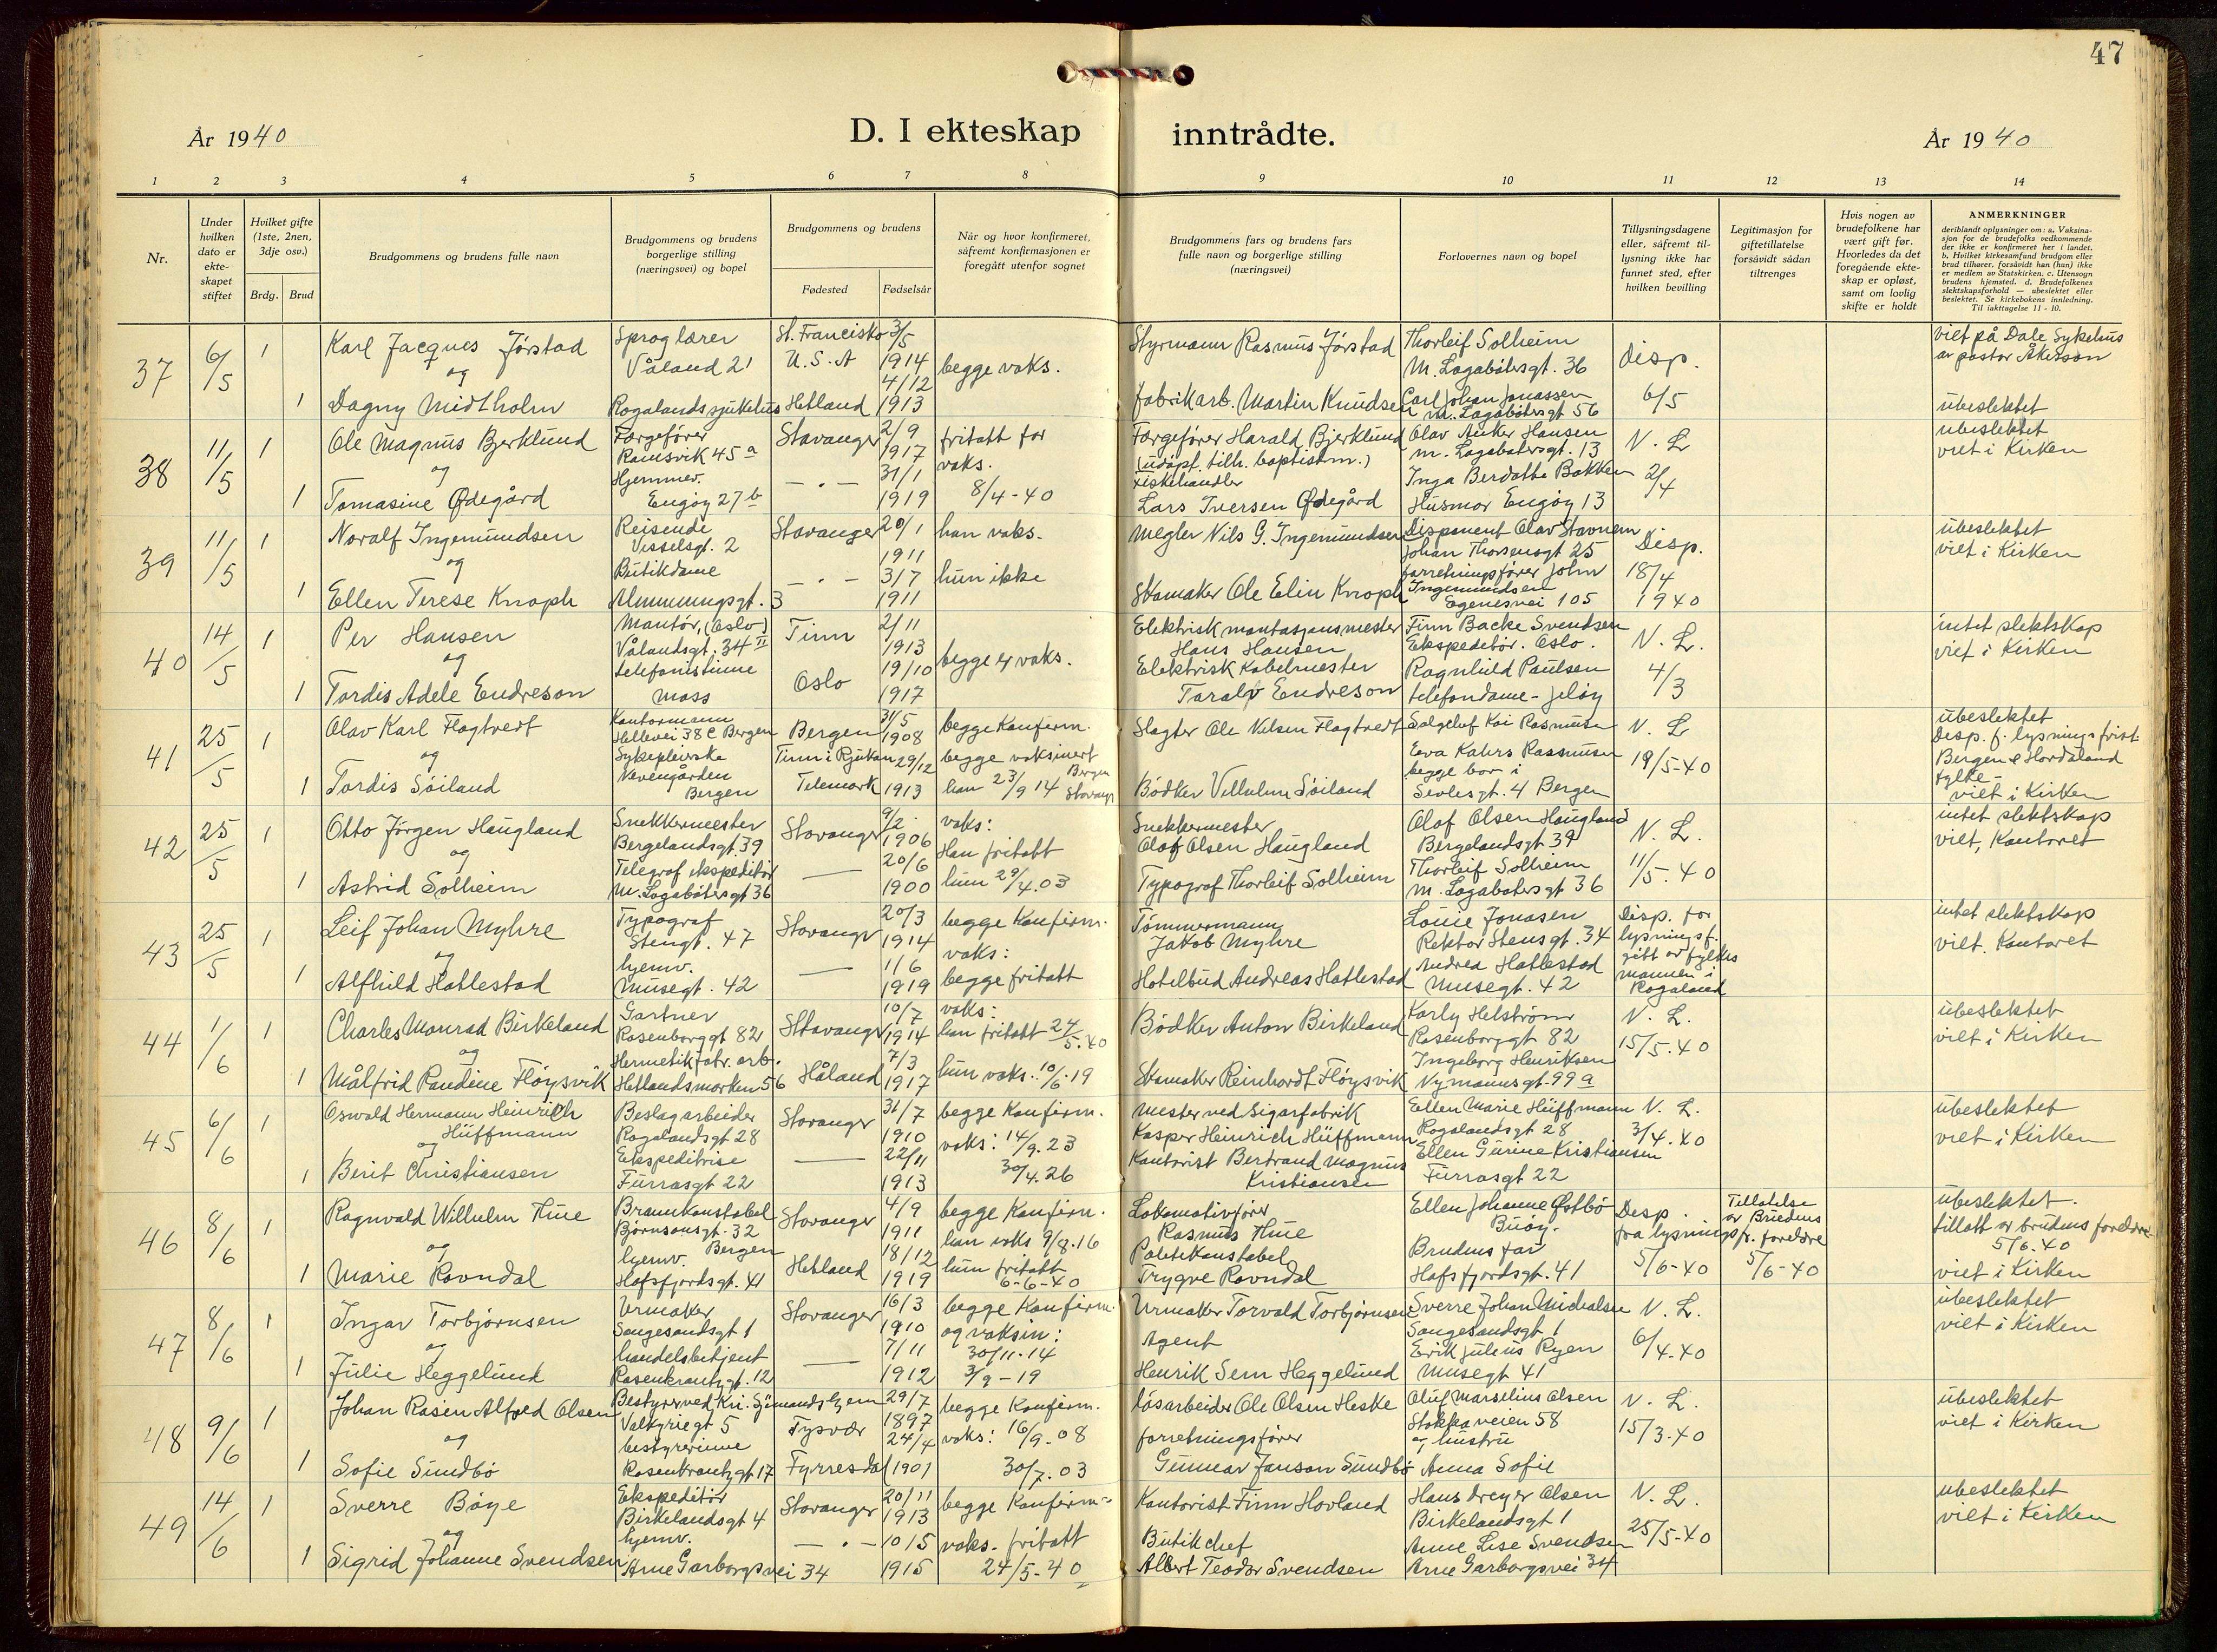 47
År 1940
D. I ekteskap inntrådte.
År 1940
1 2 3 4 5 6 7 8 9 10 11 12 13 14
Nr.
Under hvilken dato er ekte-skapet stiftet
Hvilket gifte (1ste, 2nen, 3dje osv.)
Brdg. Brud
Brudgommens og brudens fulle navn
Brudgommens og brudens borgerlige stilling (næringsvei) og bopel
Brudgommens og brudens
Fødested Fødselsår
Når og hvor konfirmeret, såfremt konfirmasjonen er foregått utenfor sognet
Brudgommens fars og brudens fars fulle navn og borgerlige stilling (næringsvei)
Forlovernes navn og bopel
Tillysningsdagene eller, såfremt til-lysning ikke har funnet sted, efter hvilken bevilling
Legitimasjon for giftetillatelse forsåvidt sådan tiltrenges
Hvis nogen av brudefolkene har vært gift før. Hvorledes da det foregående ekte-skap er opløst, samt om lovlig skifte er holdt
ANMERKNINGER
deriblandt oplysninger om: a. Vaksina-sjon for de brudefolks vedkommende der ikke er konfirmeret her i landet. b. Hvilket kirkesamfund brudgom eller brud tilhører, forsåvidt han (hun) ikke er medlem av Statskirken. c. Utensogn brudens hjemsted. d. Brudefolkenes slektskapsforhold — ubeslektet eller beslektet. Se kirkebokens innledning. Til iakttagelse 11 - 10.
37 6/5 1 Karl Jacques Jørstad Sproglærer Våland 21 St. Francisko U.S.A 3/5 1914 begge vaks. Styrmann Rasmus Jørstad Thorleif Solheim M. Lagabøtersgt. 36 Disp. viet på Dale Sykehus av pastor Åkerson
og
1 Dagny Midtholm Rogalands sjukehus Hetland 4/12 1913 fabrikarb. Martin Knudsen Carl Johan Jonassen M. Lagabøtersgt 56 6/5 ubeslektet
38 11/5 1 Ole Magnus Bjerklund Færgefører Ramsvik 45a Stavanger 2/9 1917 fritatt for vaks. Færgefører Harald Bjerklund (udøpt. tilh. baptistm.) Olav Anker Hansen M. Lagabøtersgt. 13 N. L. ubeslektet viet i Kirken
og
1 Tomasine Ødegård Hjemmev. Engøy 27b — " — 31/1 1919 8/4-40 Fiskehandler Lars Iversen Ødegård Inga Berdathe Bakken Husmor Engøy 13 2/4
39 11/5 1 Noralf Ingemundsen Reisende Visselsgt. 2 Stavanger 20/1 1911 han vaks. Megler Nils G. Ingemundsen Disponent Olav Stavnem Johan Thorsensgt 25 Disp. ubeslektet viet i Kirken
og
1 Ellen Terese Knoph Butikdame Almuningsgt. 3 — " — 3/7 1911 hun ikke Skomaker Ole Elin Knoph forretningsfører John Ingemundsen Egenesvei 105 18/4 1940
40 14/5 1 Per Hansen Montør, (Oslo) Vålandsgt. 34 II Tinn 2/11 1913 begge er vaks. Elektrisk montasjonsmester Hans Hansen Finn Backe Svendsen Ekspeditør. Oslo. N. L. intet slektskap viet i Kirken
og
1 Tordis Adele Endreson telefonistinne Moss Oslo 19/10 1917 Elektrisk Kabelmester Taralv Endreson Ragnhild Paulsen telefondame - Jeløy 4/3
41 25/5 1 Olav Karl Flogtvedt Kontormann Hellevei 38 C Bergen Bergen 31/5 1908 begge Konfirm. Slagter Ole Nilsen Flogtvedt Salgchef Kai Rasmussen N. L. ubeslektet Disp. f. lysningsfrist Bergen & Hordaland fylke -
og
1 Tordis Søiland Sykepleierske Nevengården Bergen Tinn i Rjukan Telemark 29/12 1913 begge vaksinert han 23/9 14 Bergen Stavanger Bødker Vilhelm Søiland Eva Kahrs Rasmussen begge bor i Sevlesgt. 4 Bergen 19/5-40 viet i Kirken
42 25/5 1 Otto Jørgen Haugland Snekkermester Bergelandsgt. 39 Stavanger 9/2 1906 vaks: Han fritatt Snekkermester Olaf Olsen Haugland Olaf Olsen Haugland Bergelandsgt 39 N. L. intet slektskap viet, Kontoret
og
1 Astrid Solheim Telegraf ekspeditør M. Lagabøtersgt 36 — 20/6 1900 hun 29/4.03 Typograf Thorleif Solheim Thorleif Solheim M. Lagabøtersgt 36 11/5.40
43 25/5 1 Leif Johan Myhre Typograf Stengt. 47 Stavanger 20/3 1914 begge Konfirm. vaks: Tømmermann Jakob Myhre Louie Jonasen Rektor Stensgt. 34 Disp. for lysningsf. gitt av fylkes mannen i Rogaland intet slektskap viet. Kontoret
og
1 Alfhild Hatlestad hjemv. Musegt. 42 — 1/6 1919 begge fritatt Hotelbud Andreas Hatlestad Andrea Hatlestad Musegt. 42
44 1/6 1 Charles Monrad Birkeland Gartner Rosenborggt 82 Stavanger 10/7 1914 vaks: han fritatt 24/5.40 Bødker Anton Birkeland Karly Helstrøm Rosenborggt 82 N. L. ubeslektet viet i Kirken
og
1 Målfrid Randine Fløysvik Hermetikfabr. arb. Hetlandsmarken 56 Håland 7/3 1917 hun vaks: 10/6.19 Skomaker Reinhardt Fløysvik Ingeborg Henriksen Nymannsgt. 99a 15/5.40
45 6/6 1 Oswald Hermann Heinrich Hüffmann Beslagarbeider Rogalandsgt 28 Stavanger 31/7 1910 begge Konfirm. vaks: 14/9.23 Mester ved Sigarfabrik Kasper Heinrich Hüffmann Ellen Marie Hüffmann Rogalandsgt 28 N. L. ubeslektet viet i Kirken
og
1 Berit Christiansen Ekspeditrise Furrasgt 22 — 22/11 1913 30/4.26 Kontorist Bertrand Magnus Kristiansen Ellen Gurine Kristiansen Furrasgt 22 3/4.40
46 8/6 1 Ragnvald Wilhelm Hue Brannkonstabel Bjørnsonsgt. 32 Bergen Stavanger 4/9 1911 begge Konfirm. han vaks 9/8.16 Lokomotivfører Rasmus Hue Ellen Johanne Østbø Buøy. Disp. fra lysningsfr. Tillatelse av Brudens foreldre ubeslektet. tillatt av brudens foreldre 5/6.40
og
1 Marie Ravndal hjemv. Hafsfjordsgt. 41 Hetland 18/12 1919 hun fritatt 6-6-40 Politikonstabel Trygve Ravndal Brudens far Hafsfjordsgt. 41 5/6-40 5/6-40 viet i Kirken
47 8/6 1 Ingar Torbjørnsen Urmaker Sangesandsgt 1 Stavanger 16/3 1910 begge Konfirm. og vaksin: Urmaker Torvald Torbjørnsen Sverre Johan Michalsen Sangesandsgt 1 N. L. ubeslektet viet i Kirken
og
1 Julie Heggelund handelsbetjent Rosenkrantzgt. 12 — 7/11 1912 30/11.14 3/9-19 Agent Henrik Sem Heggelund Erik Julius Ryen Musegt 41 6/4.40
48 9/6 1 Johan Rasen Alfred Olsen Bestyrer ved Kri. Sjømandshjem Valkyriegt 5 Tysvær 29/7 1897 begge Konfirm. vaks: 16/9.08 løsarbeider Ole Olsen Heske Oluf Marselius Olsen Stokkaveien 58 N. L. ubeslektet viet i Kirken
og
1 Sofie Sundbø bestyrerinne Rosenkrantzgt 17 Fyrresdal 24/4 1901 30/7.03 forretningsfører Gunnar Janson Sundbø og hustru Anna Sofie 15/3.40
49 14/6 1 Sverre Bøye Ekspeditør Birkelandsgt 4 Stavanger 20/11 1913 begge Konfirm. Kontorist Finn Hovland Hans Dreyer Olsen Birkelandsgt 1 N. L. ubeslektet viet i Kirken
og
1 Sigrid Johanne Svendsen hjemv. Arne Garborgsvei 34 — " — 10/5 1915 vaks. fritatt 24/5-40 Butikchef Albert Teodor Svendsen Anne Lise Svendsen Arne Garborgsvei 34 25/5-40